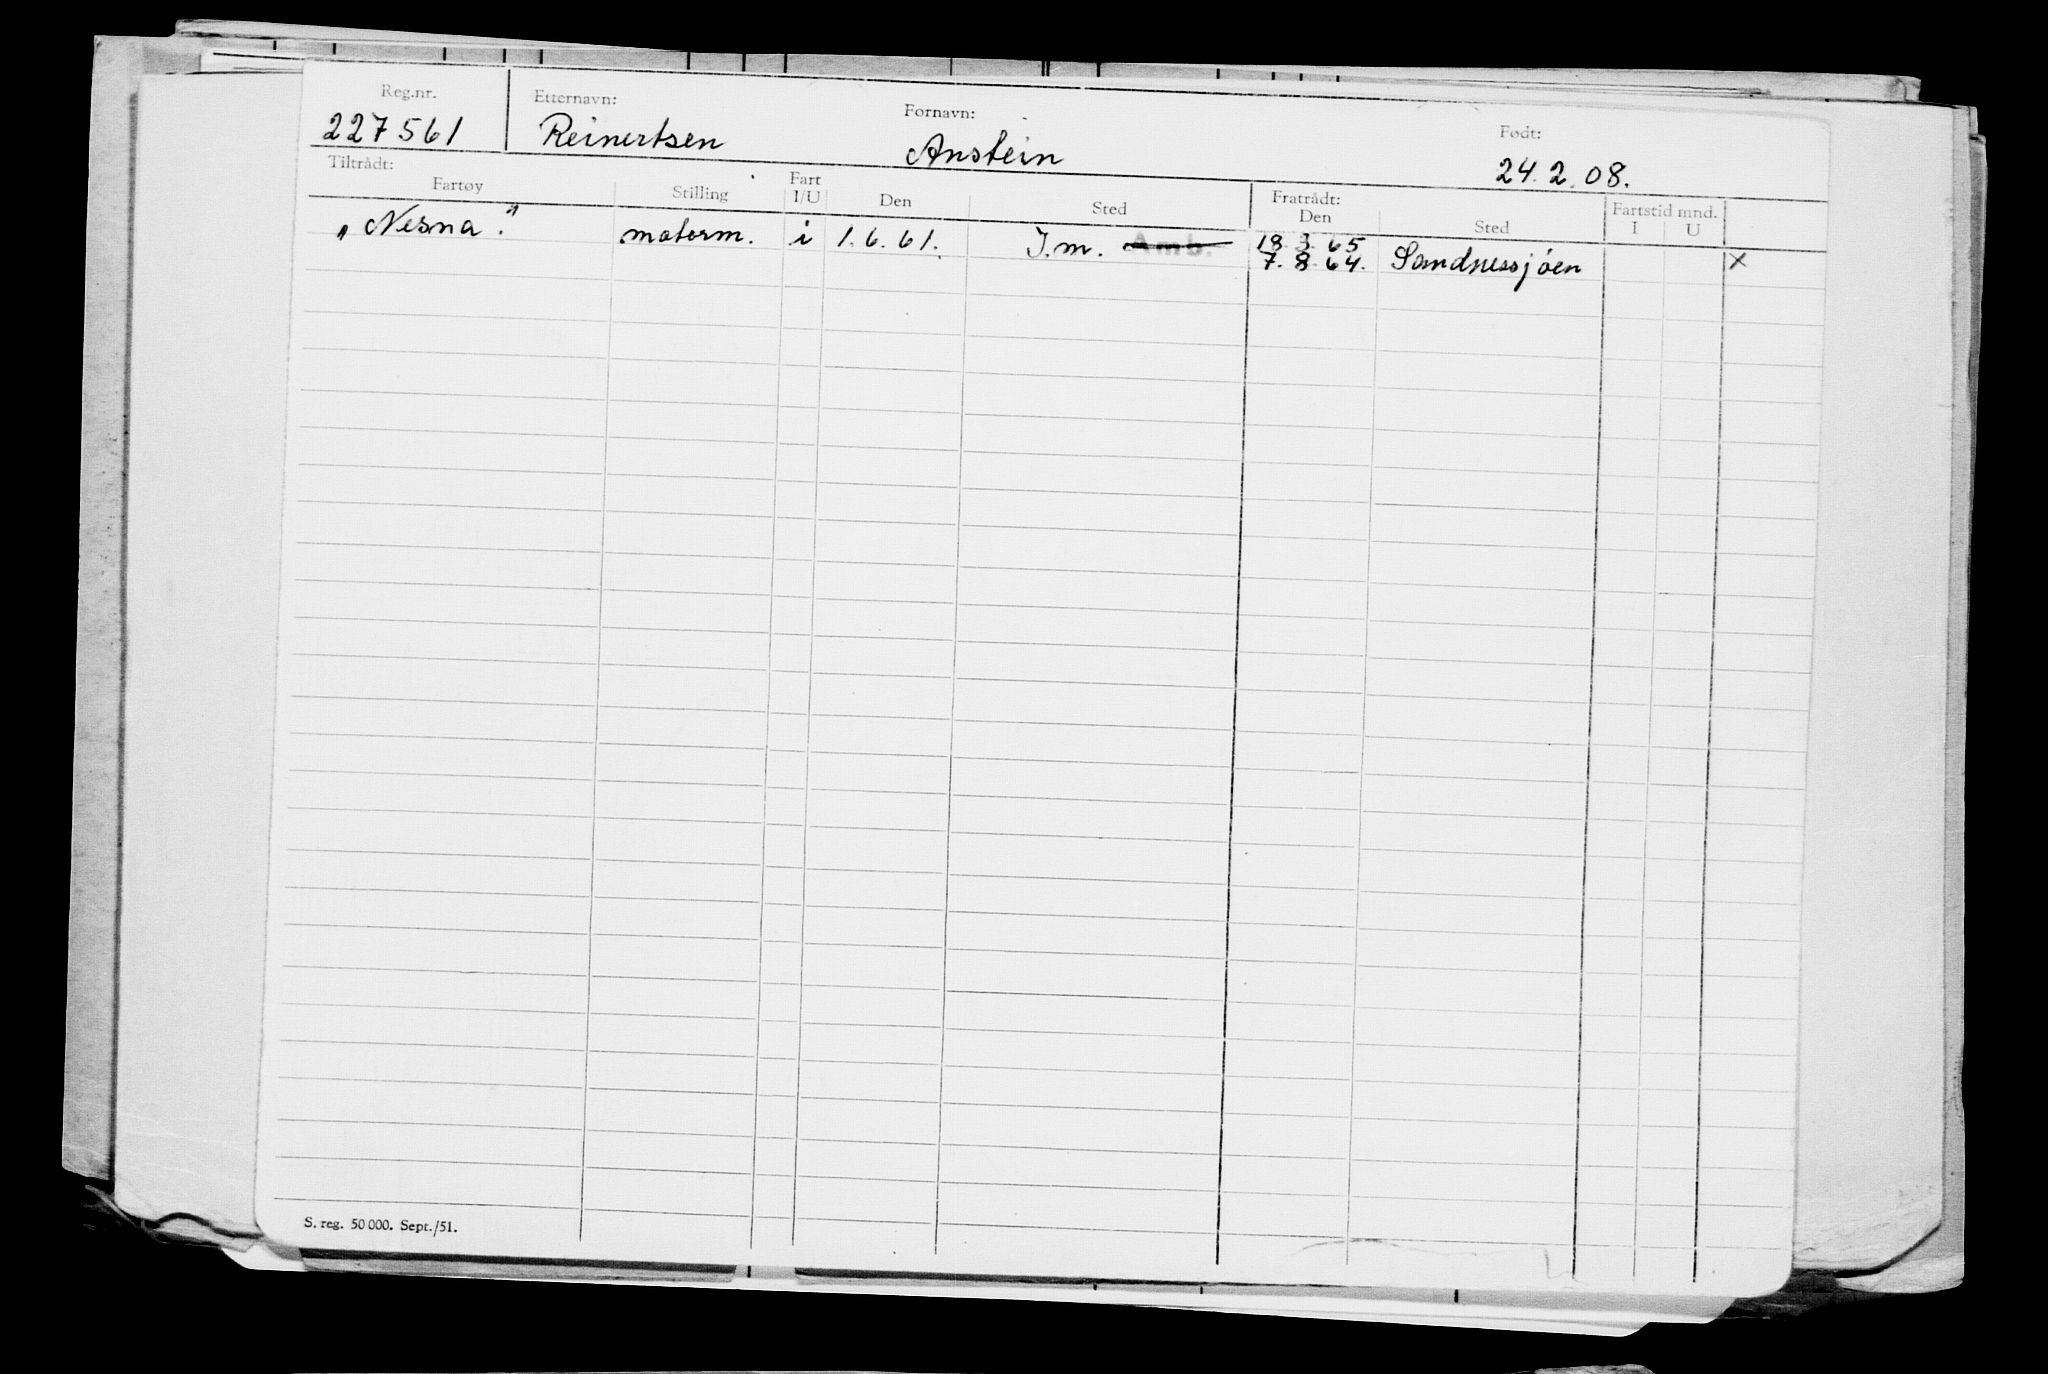 Reg.nr. Etternavn: Fornavn: Født:
227561 Reinertsen Anstein 24.2.08.
Tiltrådt: Fratrådt:
Fartøy Stilling Fart I/U Den Sted Den Sted Fartstid mnd. I U
"Nesna". motorm. i 1.6.61. I.m. Amb. 18.3.65
7.8.64. Sandnessjøen x
S. reg. 50 000. Sept./51.